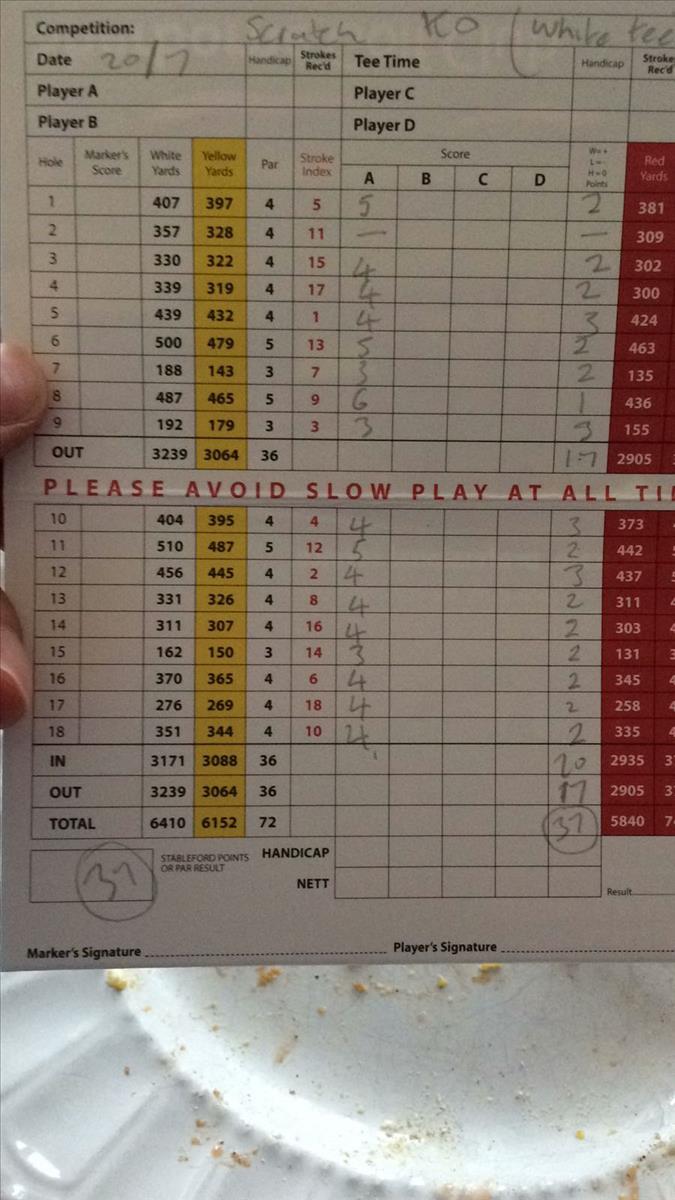 Competition: Scratch KO (White tee
Date 20/7 Handicap Strokes Rec'd Tee Time Handicap Stroke Rec'd
Player A Player C
Player B Player D
Hole Marker's Score White Yards Yellow Yards Par Stroke Index Score A B C D W=+ L=- H=0 Points Red Yards
1 407 397 4 5 5 2 381
2 357 328 4 11 — — 309
3 330 322 4 15 4 2 302
4 339 319 4 17 4 2 300
5 439 432 4 1 4 3 424
6 500 479 5 13 5 2 463
7 188 143 3 7 3 2 135
8 487 465 5 9 6 1 436
9 192 179 3 3 3 3 155
OUT 3239 3064 36 17 2905 3
PLEASE AVOID SLOW PLAY AT ALL TI
10 404 395 4 4 4 3 373 4
11 510 487 5 12 5 2 442 5
12 456 445 4 2 4 3 437 5
13 331 326 4 8 4 2 311 4
14 311 307 4 16 4 2 303 4
15 162 150 3 14 3 2 131 3
16 370 365 4 6 4 2 345 4
17 276 269 4 18 4 2 258 4
18 351 344 4 10 4 2 335 4
IN 3171 3088 36 20 2935 3
OUT 3239 3064 36 17 2905 3
TOTAL 6410 6152 72 37 5840 7
37 STABLEFORD POINTS OR PAR RESULT HANDICAP
NETT Result
Marker's Signature Player's Signature